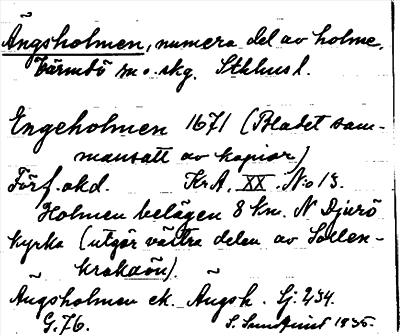 Ängsholmen, numera del av holme.
Värmdö sn o. skg. Sthlms l.
Engeholmen 1671 (Bladet sam-
mansatt av kopior)
Förf. okd. Kr A. XX. N:o 13.
Holmen belägen 8 km. N Djurö
kyrka (utgör västra delen av Sollen-
krokaön).
Ängsholmen ek. Ängsh. Sj. 234.
G. 76. S. 1935.